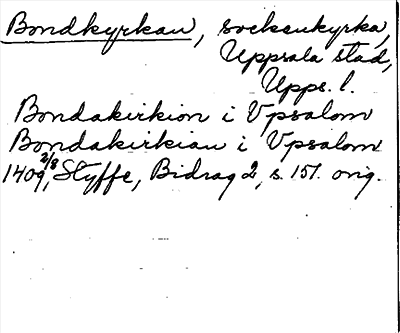 Bondkyrkan, sockenkyrka,
Uppsala stad,
Upps. l.
Bondakirkion i Vpsalom
Bondakirkian i Vpsalom
1409 2/8, Styffe, Bidrag 2, s. 157. orig.